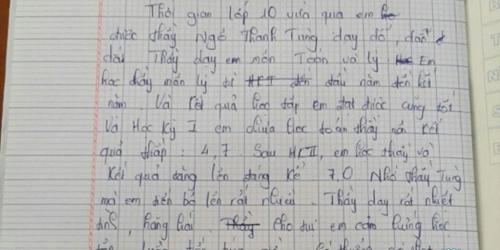 Thời gian lớp 10 vừa qua em
được thầy Ngô Thanh Tùng dạy dỗ, dẫn
dắt Thầy dạy em môn Toán và Lý. Em
học thầy môn lý từ đầu năm đến kết
năm. Và kết quả học tập em đạt được cũng tốt
Và Học Kỳ I em chưa học toán thầy nên kết
quả thấp: 4,7. Sau HKII, em học thầy và
kết quả tăng lên đáng kể 7,0 Nhờ thầy Tùng
mà em tiến bộ lên rất nhiều. Thầy dạy rất nhiệt
tình, hăng hái. Thầy cho tụi em cảm hứng học